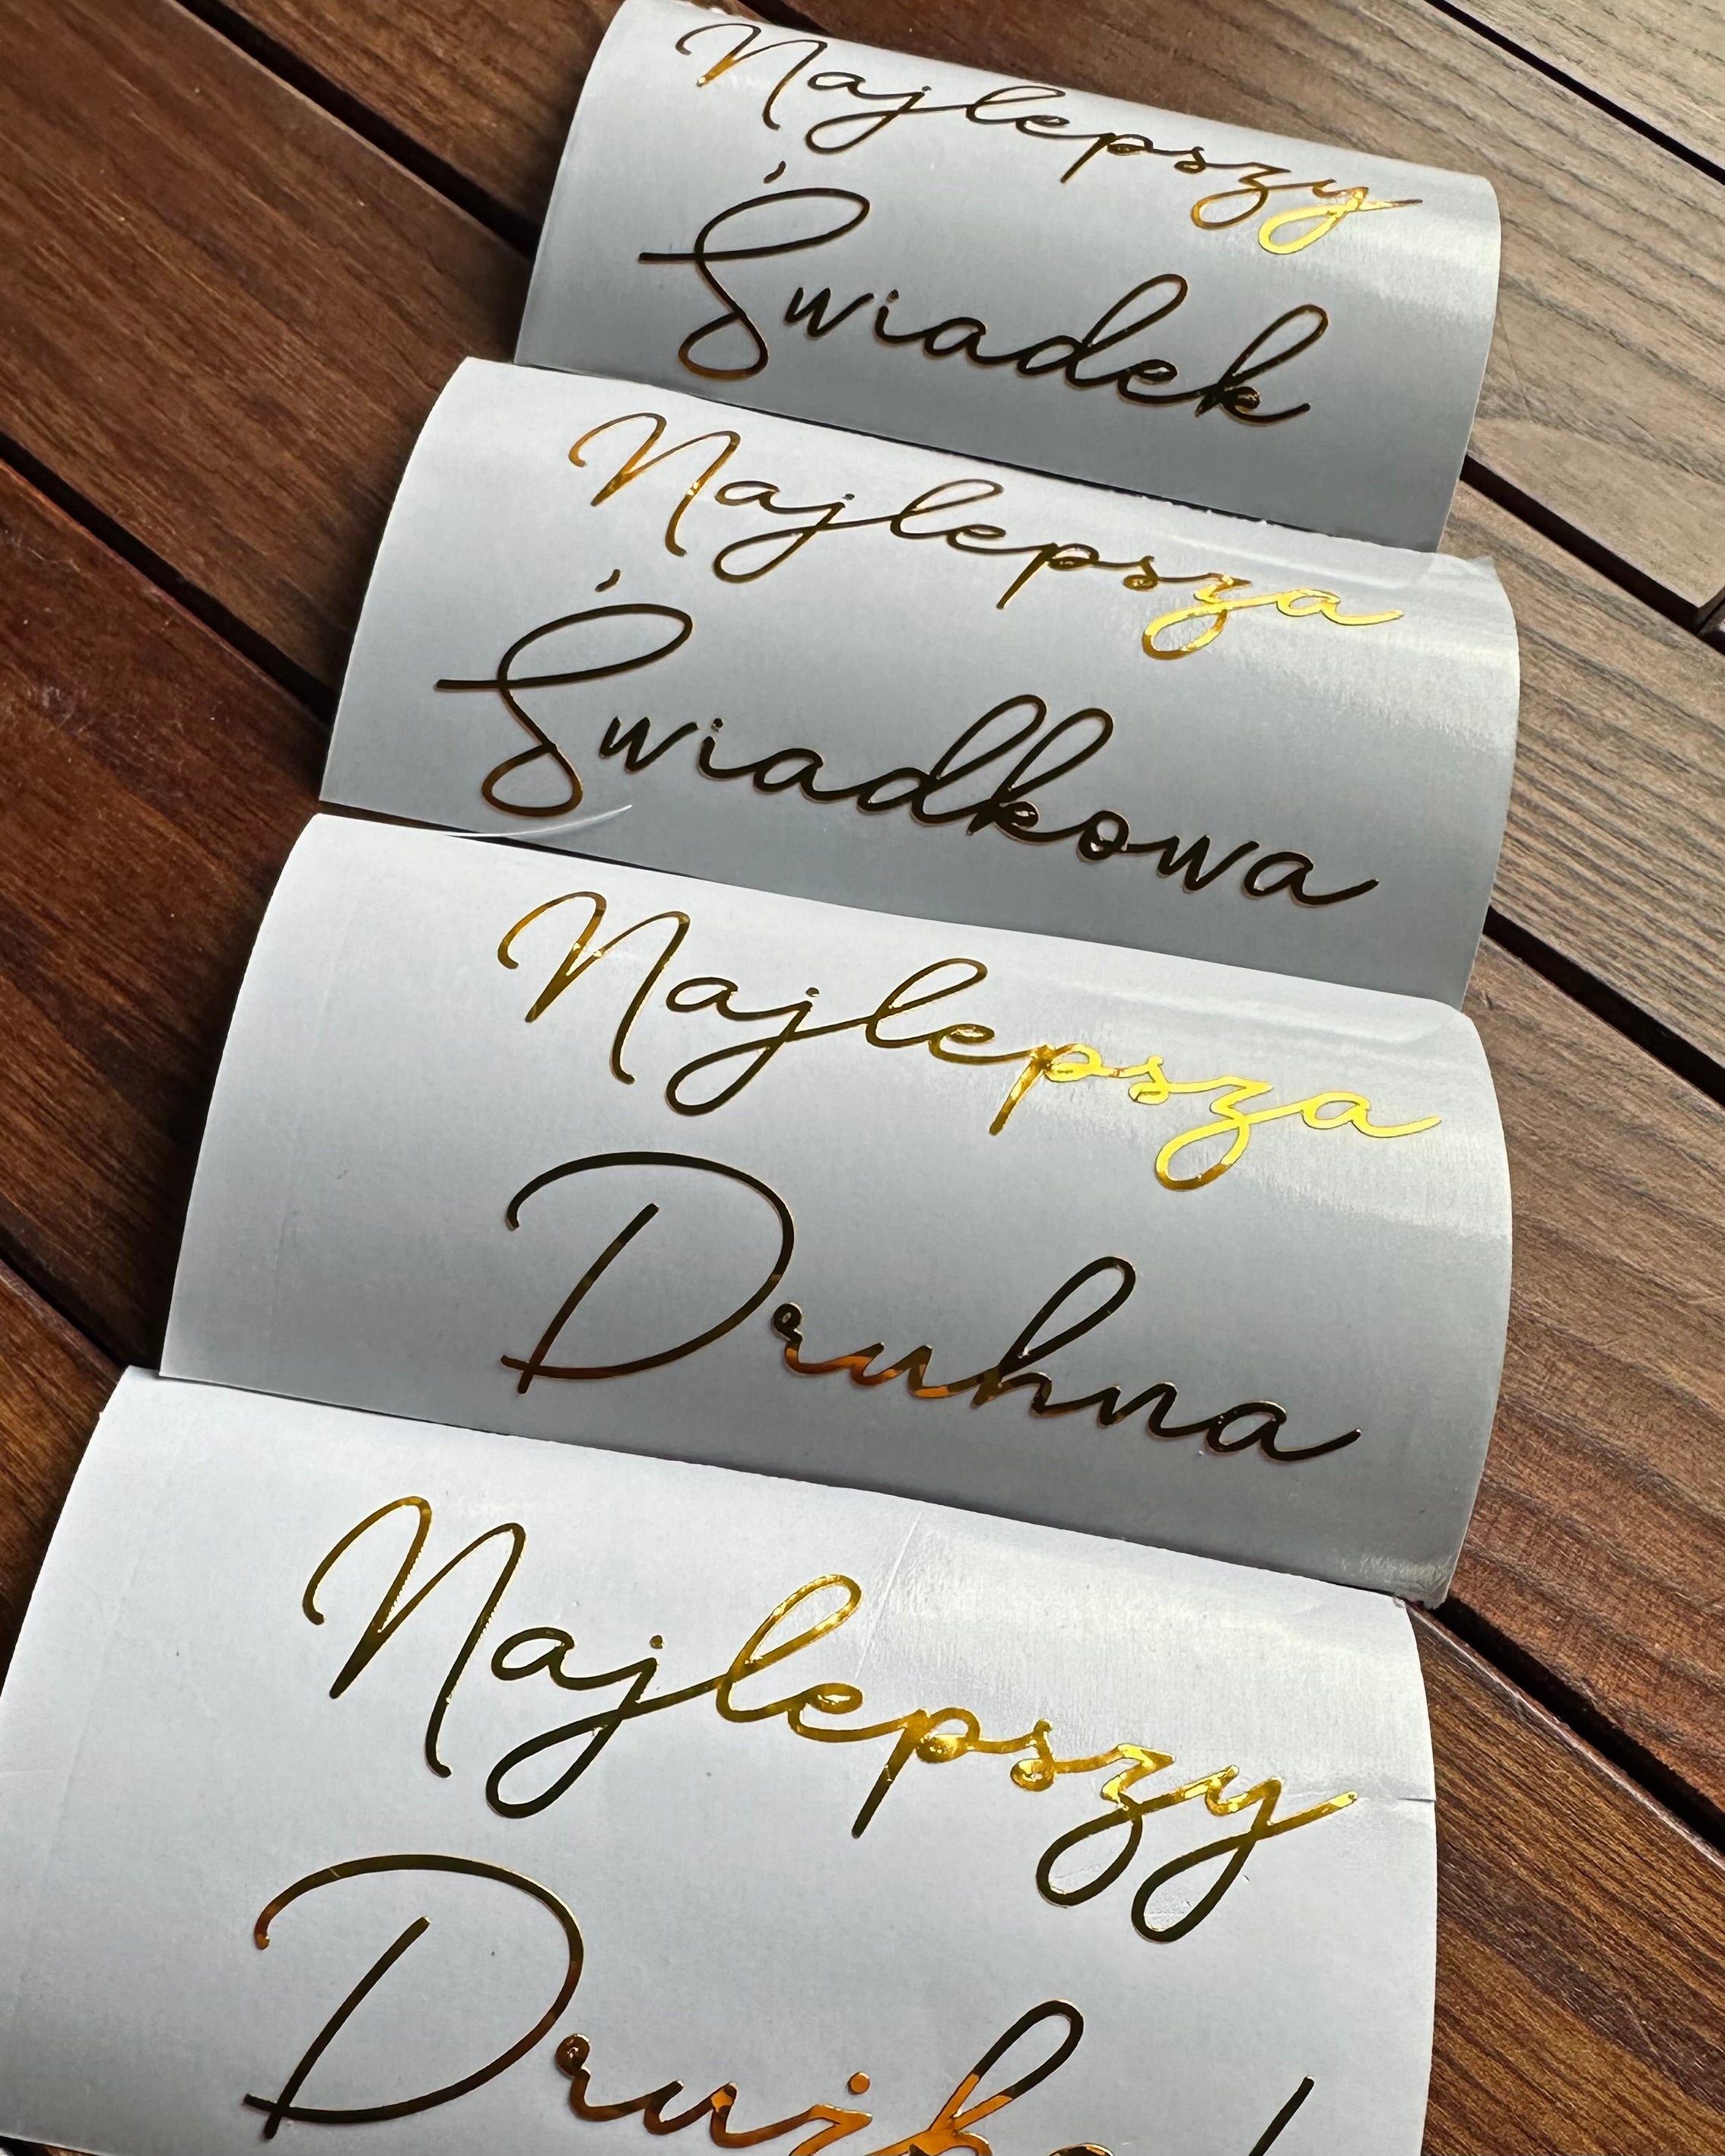 Najlepszy
Świadek
Najlepsza
Świadkowa
Najlepsza
Druhna
Najlepszy